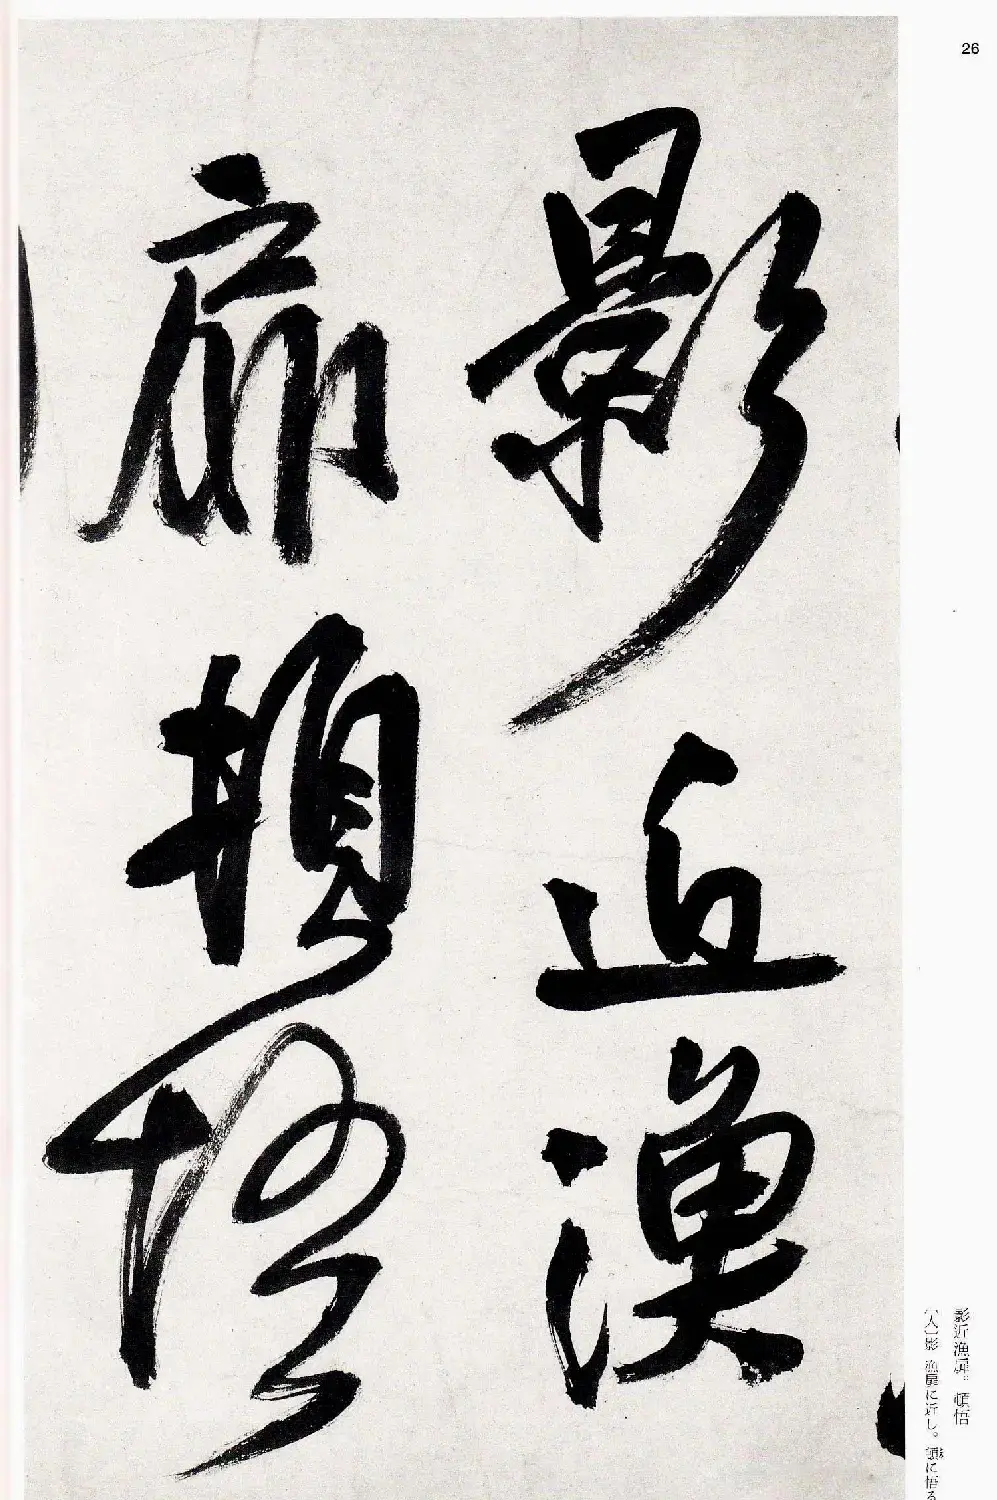 26
影近漁
扉頓悟
影近漁扉。頓悟
(人)影 漁扉に近し。頓に悟る